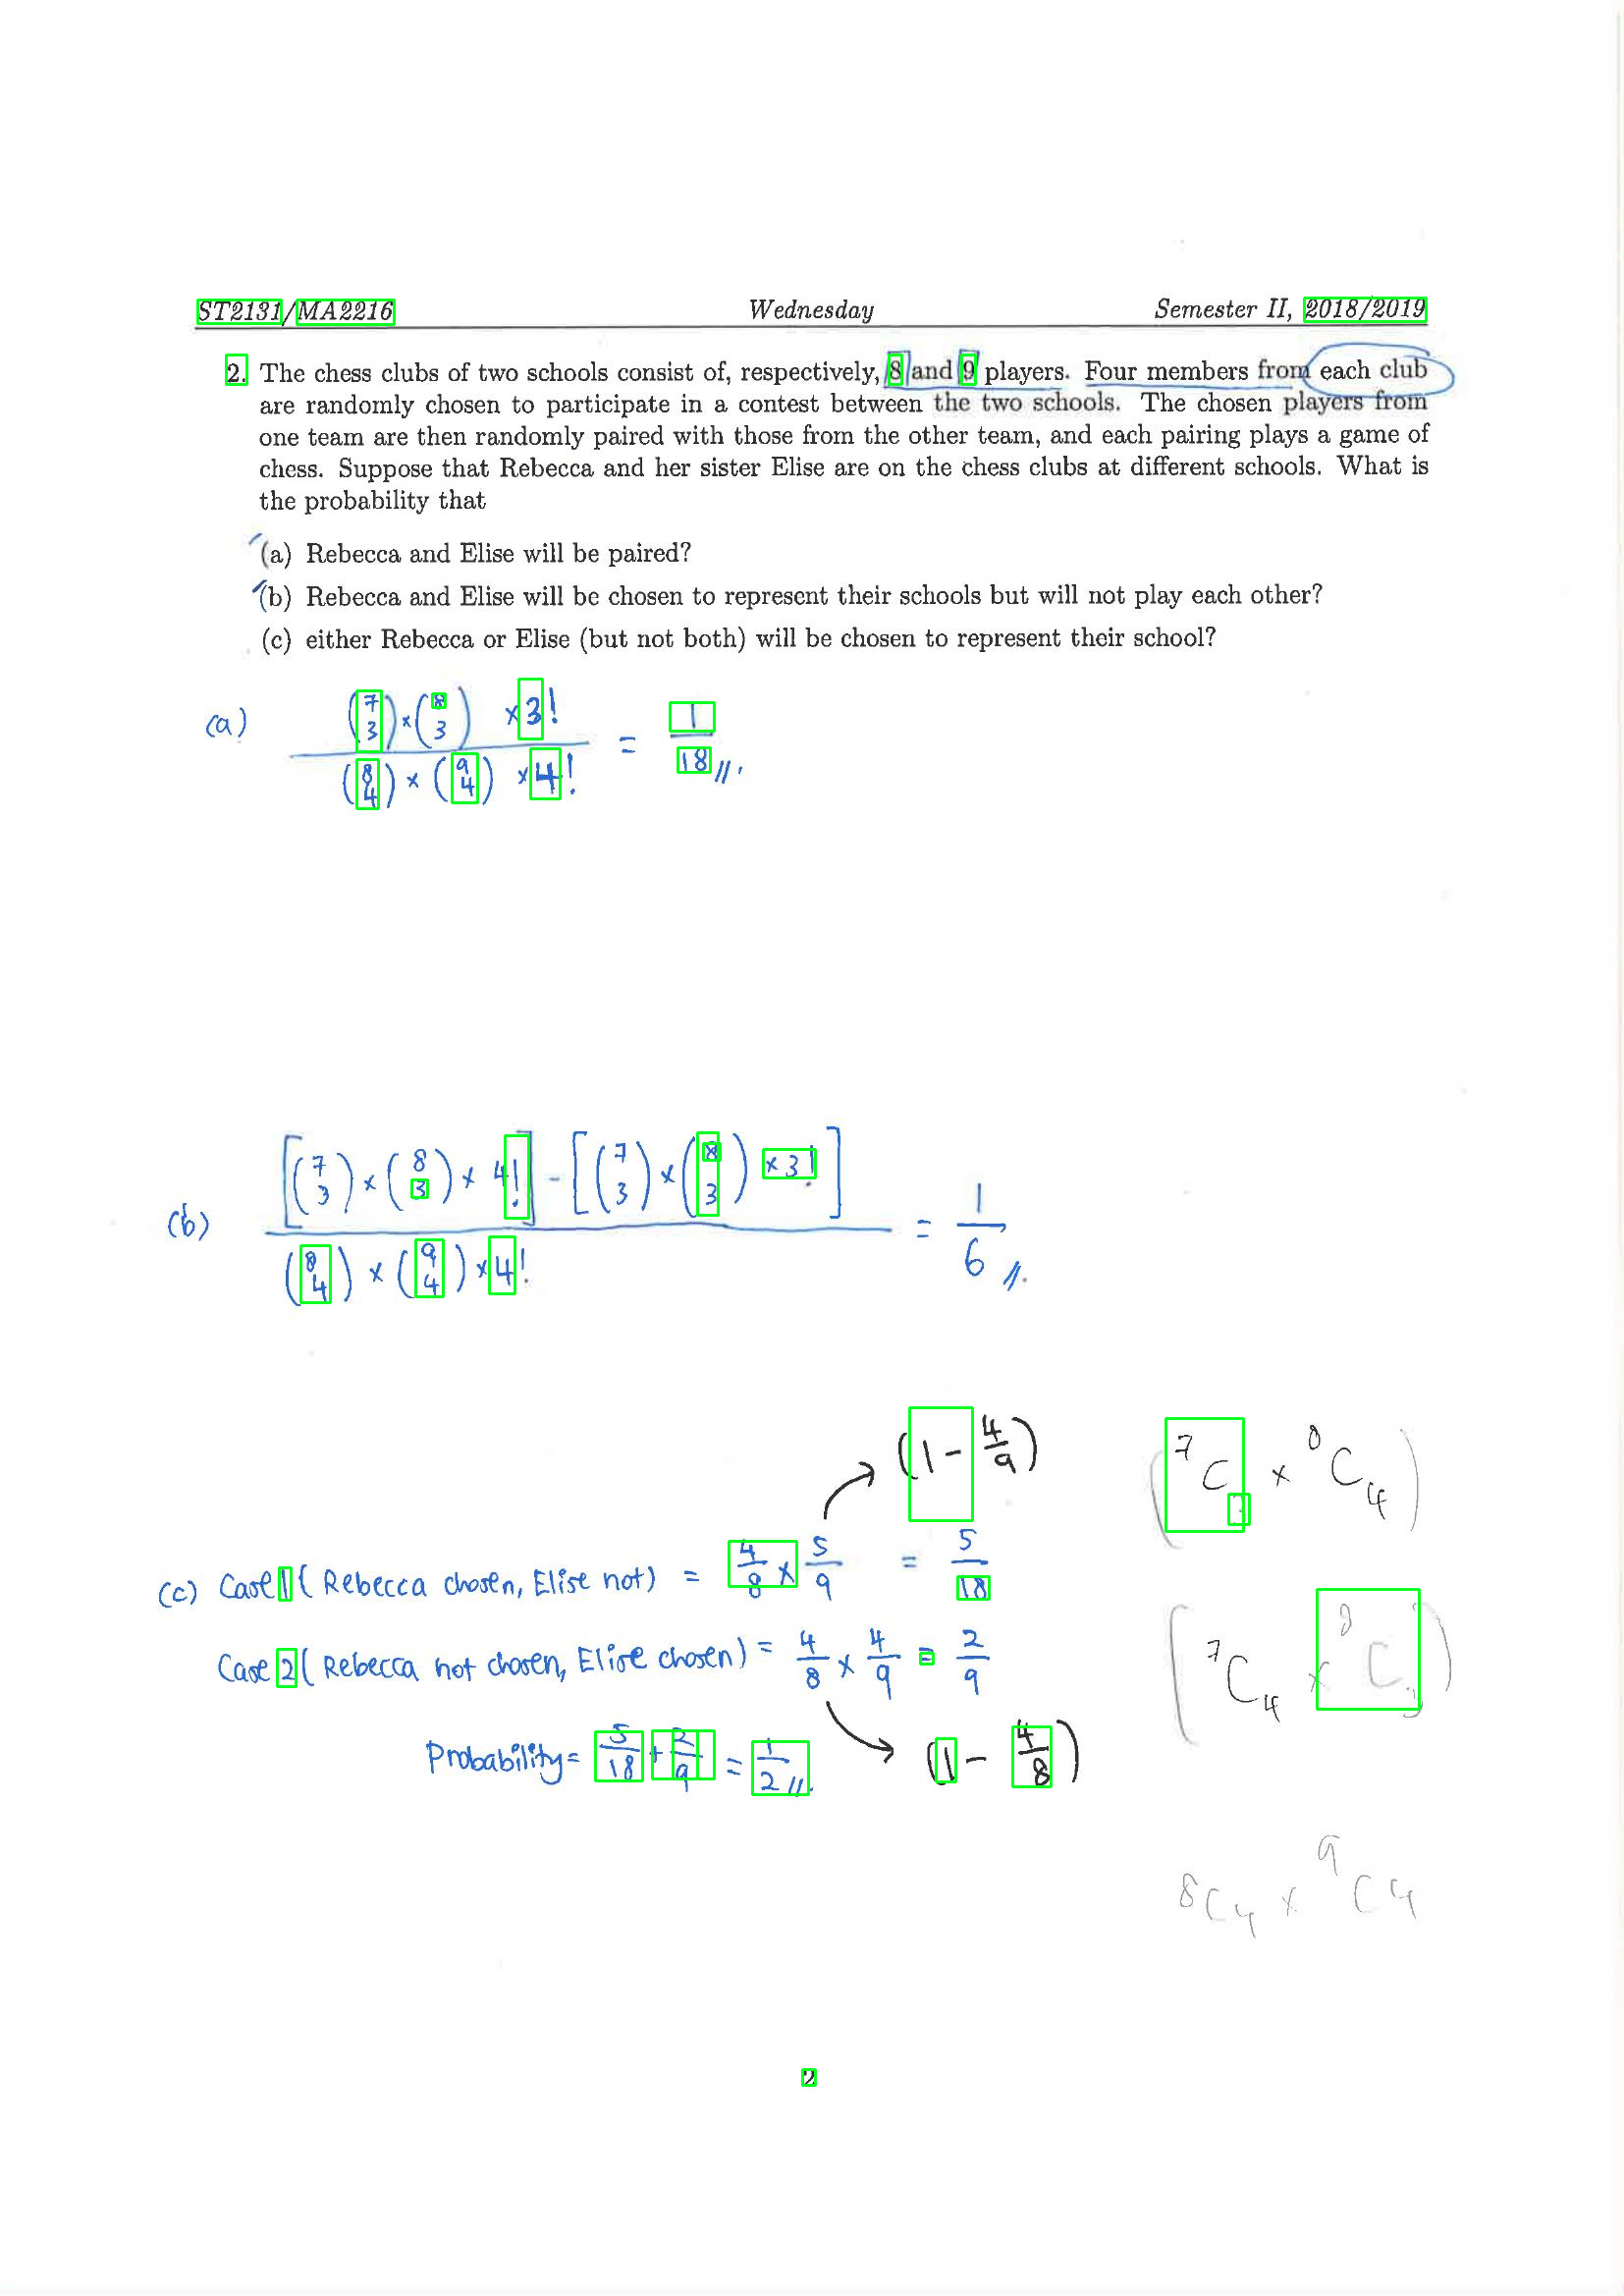 ST2131/MA2216 Wednesday Semester II, 2018/2019
2. The chess clubs of two schools consist of, respectively, 8 and 9 players. Four members from each club
are randomly chosen to participate in a contest between the two schools. The chosen players from
one team are then randomly paired with those from the other team, and each pairing plays a game of
chess. Suppose that Rebecca and her sister Elise are on the chess clubs at different schools. What is
the probability that
(a) Rebecca and Elise will be paired?
(b) Rebecca and Elise will be chosen to represent their schools but will not play each other?
(c) either Rebecca or Elise (but not both) will be chosen to represent their school?
(a) (7 3) × (8 3) × 3! / (8 4) × (9 4) × 4! = 1/18 //.
(b) [(7 3) × (8 3) × 4!] - [(7 3) × (8 3) × 3!] / (8 4) × (9 4) × 4! = 1/6 //.
(1 - 4/9)
(7C × 8C4)
(c) Case 1 (Rebecca chosen, Elise not) = 4/8 × 5/9 = 5/18
Case 2 (Rebecca not chosen, Elise chosen) = 4/8 × 4/9 = 2/9
(7C4 × 8C3)
Probability = 5/18 + 2/9 = 1/2 //.
(1 - 4/8)
8C4 × 9C4
2